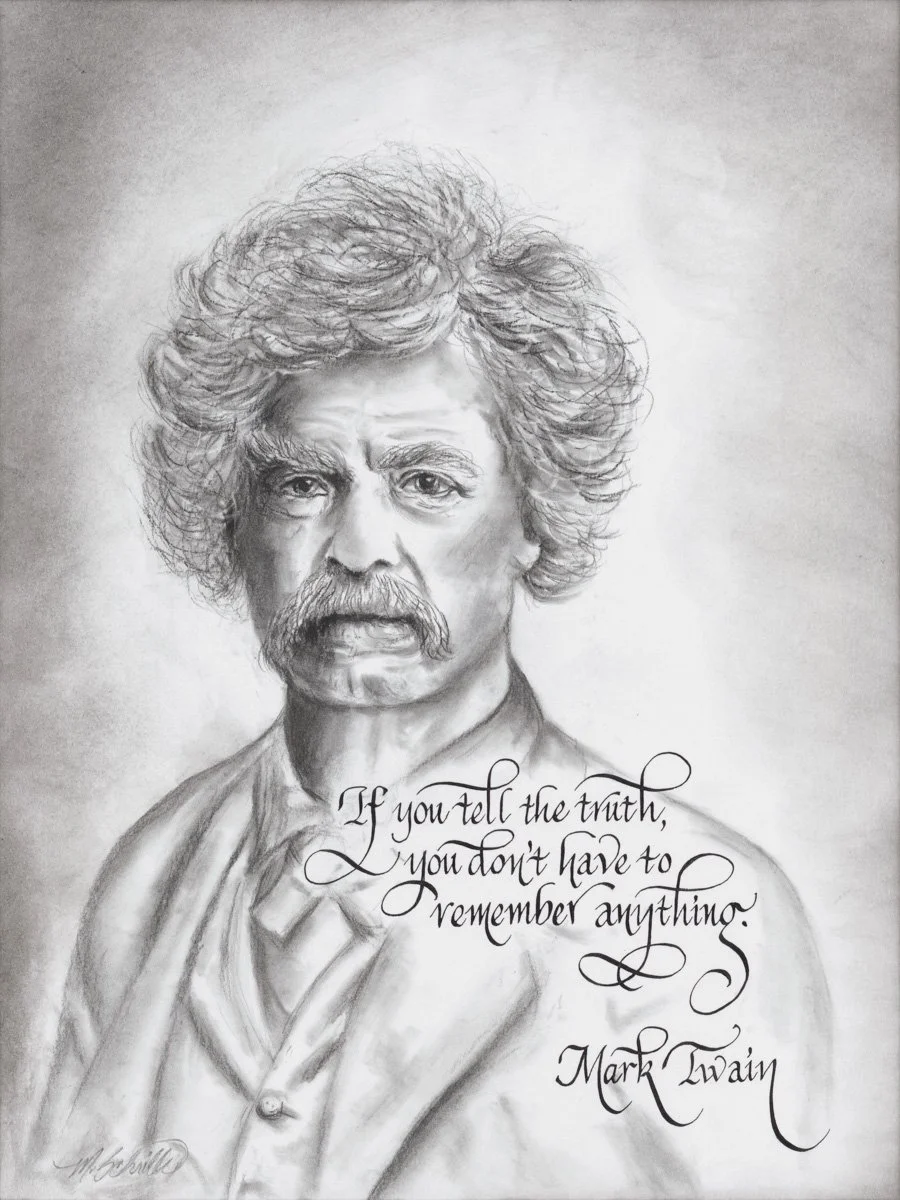 If you tell the truth,
you don't have to
remember anything.
Mark Twain